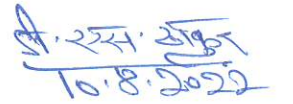 डी. एस. ठाकुर
10.8.2022